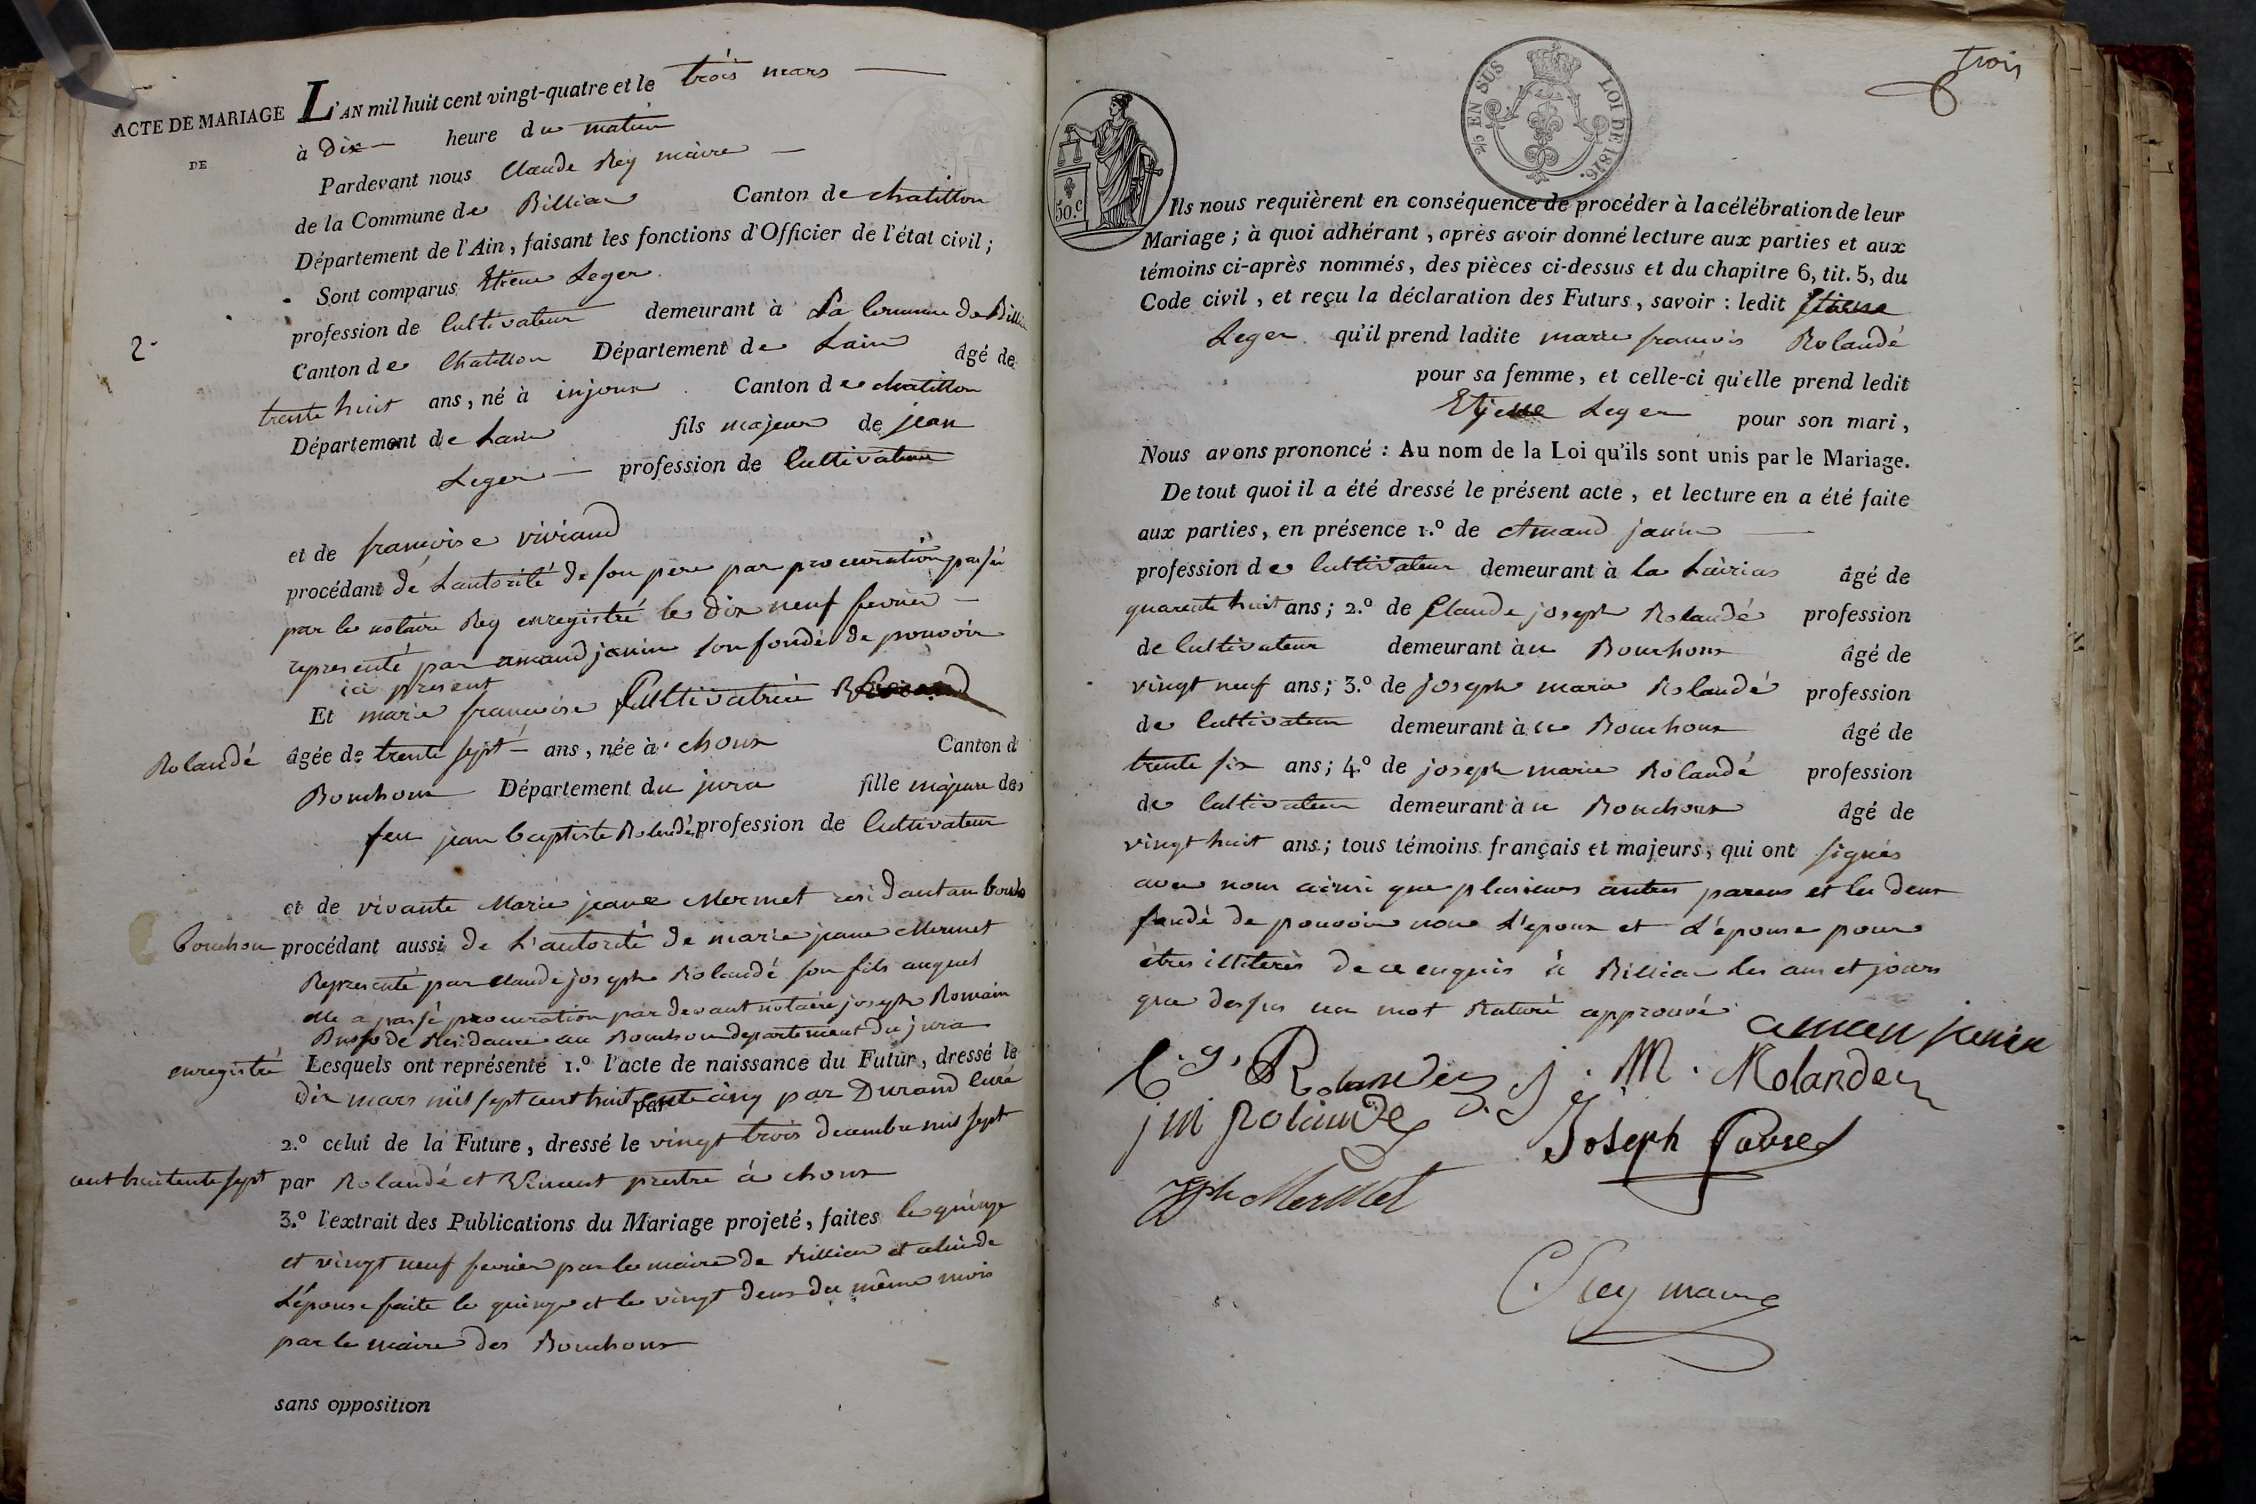 ACTE DE MARIAGE
DE
L'AN mil huit cent vingt-quatre et le trois mars
à Dix heure du matin
Pardevant nous Claude Rey maire
de la Commune de Billiac Canton de chatillon
Département de l'Ain, faisant les fonctions d'Officier de l'état civil;
Sont comparus Leger
profession de Cultivateur demeurant à La Commune de
2.
Canton de Chatillon Département de Lain âgé de
trente huit ans, né à injoux Canton de chatillon
Département de Lain fils majeur de jean
Leger profession de Cultivateur
et de françoise viviand
procédant de L'autorité de son pere par procuration passée
par le notaire Rey enregistré le Dix neuf fevrier
representé par amand janin son fondé de pouvoir
ici present
Et marie francoise Cultivatrice
Rolandé
âgée de trente sept ans, née à choux Canton d
Bouchoux Département du jura fille majeure des
feu jean baptiste Rolandé profession de Cultivateur
et de vivante Marie jeanne Mermet residant au
Bouchou
procédant aussi de L'autorité de marie jeane Mermet
Representé par Claude joseph Rolandé son fils auquel
elle a passé procuration par devant notaire joseph Romain
de Residance au Bouchou departement du jura
enregistré
Lesquels ont représenté 1.º l'acte de naissance du Futur, dressé le
Dix mars mil sept cent huit cinq par Durand Curé
par
2.º celui de la Future, dressé le vingt trois decembre mil sept
cent huitente sept
par Rolandé et Vincent prestre à choux
3.º l'extrait des Publications du Mariage projeté, faites le quinze
et vingt neuf fevrier par le maire de Billiac et celui de
L'épouse faite le quinze et le vingt deux du même mois
par le maire des Bouchoux
sans opposition
trois
2/5 EN SUS
LOI DE 1816.
50.c
Ils nous requièrent en conséquence de procéder à la célébration de leur
Mariage; à quoi adhérant, après avoir donné lecture aux parties et aux
témoins ci-après nommés, des pièces ci-dessus et du chapitre 6, tit. 5, du
Code civil, et reçu la déclaration des Futurs, savoir: ledit
Leger qu'il prend ladite marie francois Rolandé
pour sa femme, et celle-ci qu'elle prend ledit
Leger pour son mari,
Nous avons prononcé: Au nom de la Loi qu'ils sont unis par le Mariage.
De tout quoi il a été dressé le présent acte, et lecture en a été faite
aux parties, en présence 1.º de Amand janin
profession de Cultivateur demeurant à la âgé de
quarente huit ans; 2.º de Claude joseph Rolandé profession
de Cultivateur demeurant à u Bouchoux âgé de
vingt neuf ans; 3.º de joseph marie Rolandé profession
de Cultivateur demeurant à u Bouchoux âgé de
trente six ans; 4.º de joseph marie Rolandé profession
de Cultivateur demeurant à u Bouchoux âgé de
vingt huit ans; tous témoins français et majeurs, qui ont signés
avec nous ainsi que plusieurs autres parens et les deux
fondé de pouvoir non L'epoux et L'épouse pour
êtres illiterés de ce enquis à Billiac les ans et jours
que dessus un mot Raturé approuvé
aman janin
C. J. Rolandez
J. M. Rolandez
j m rolande
Joseph
Mermet
C Rey maire